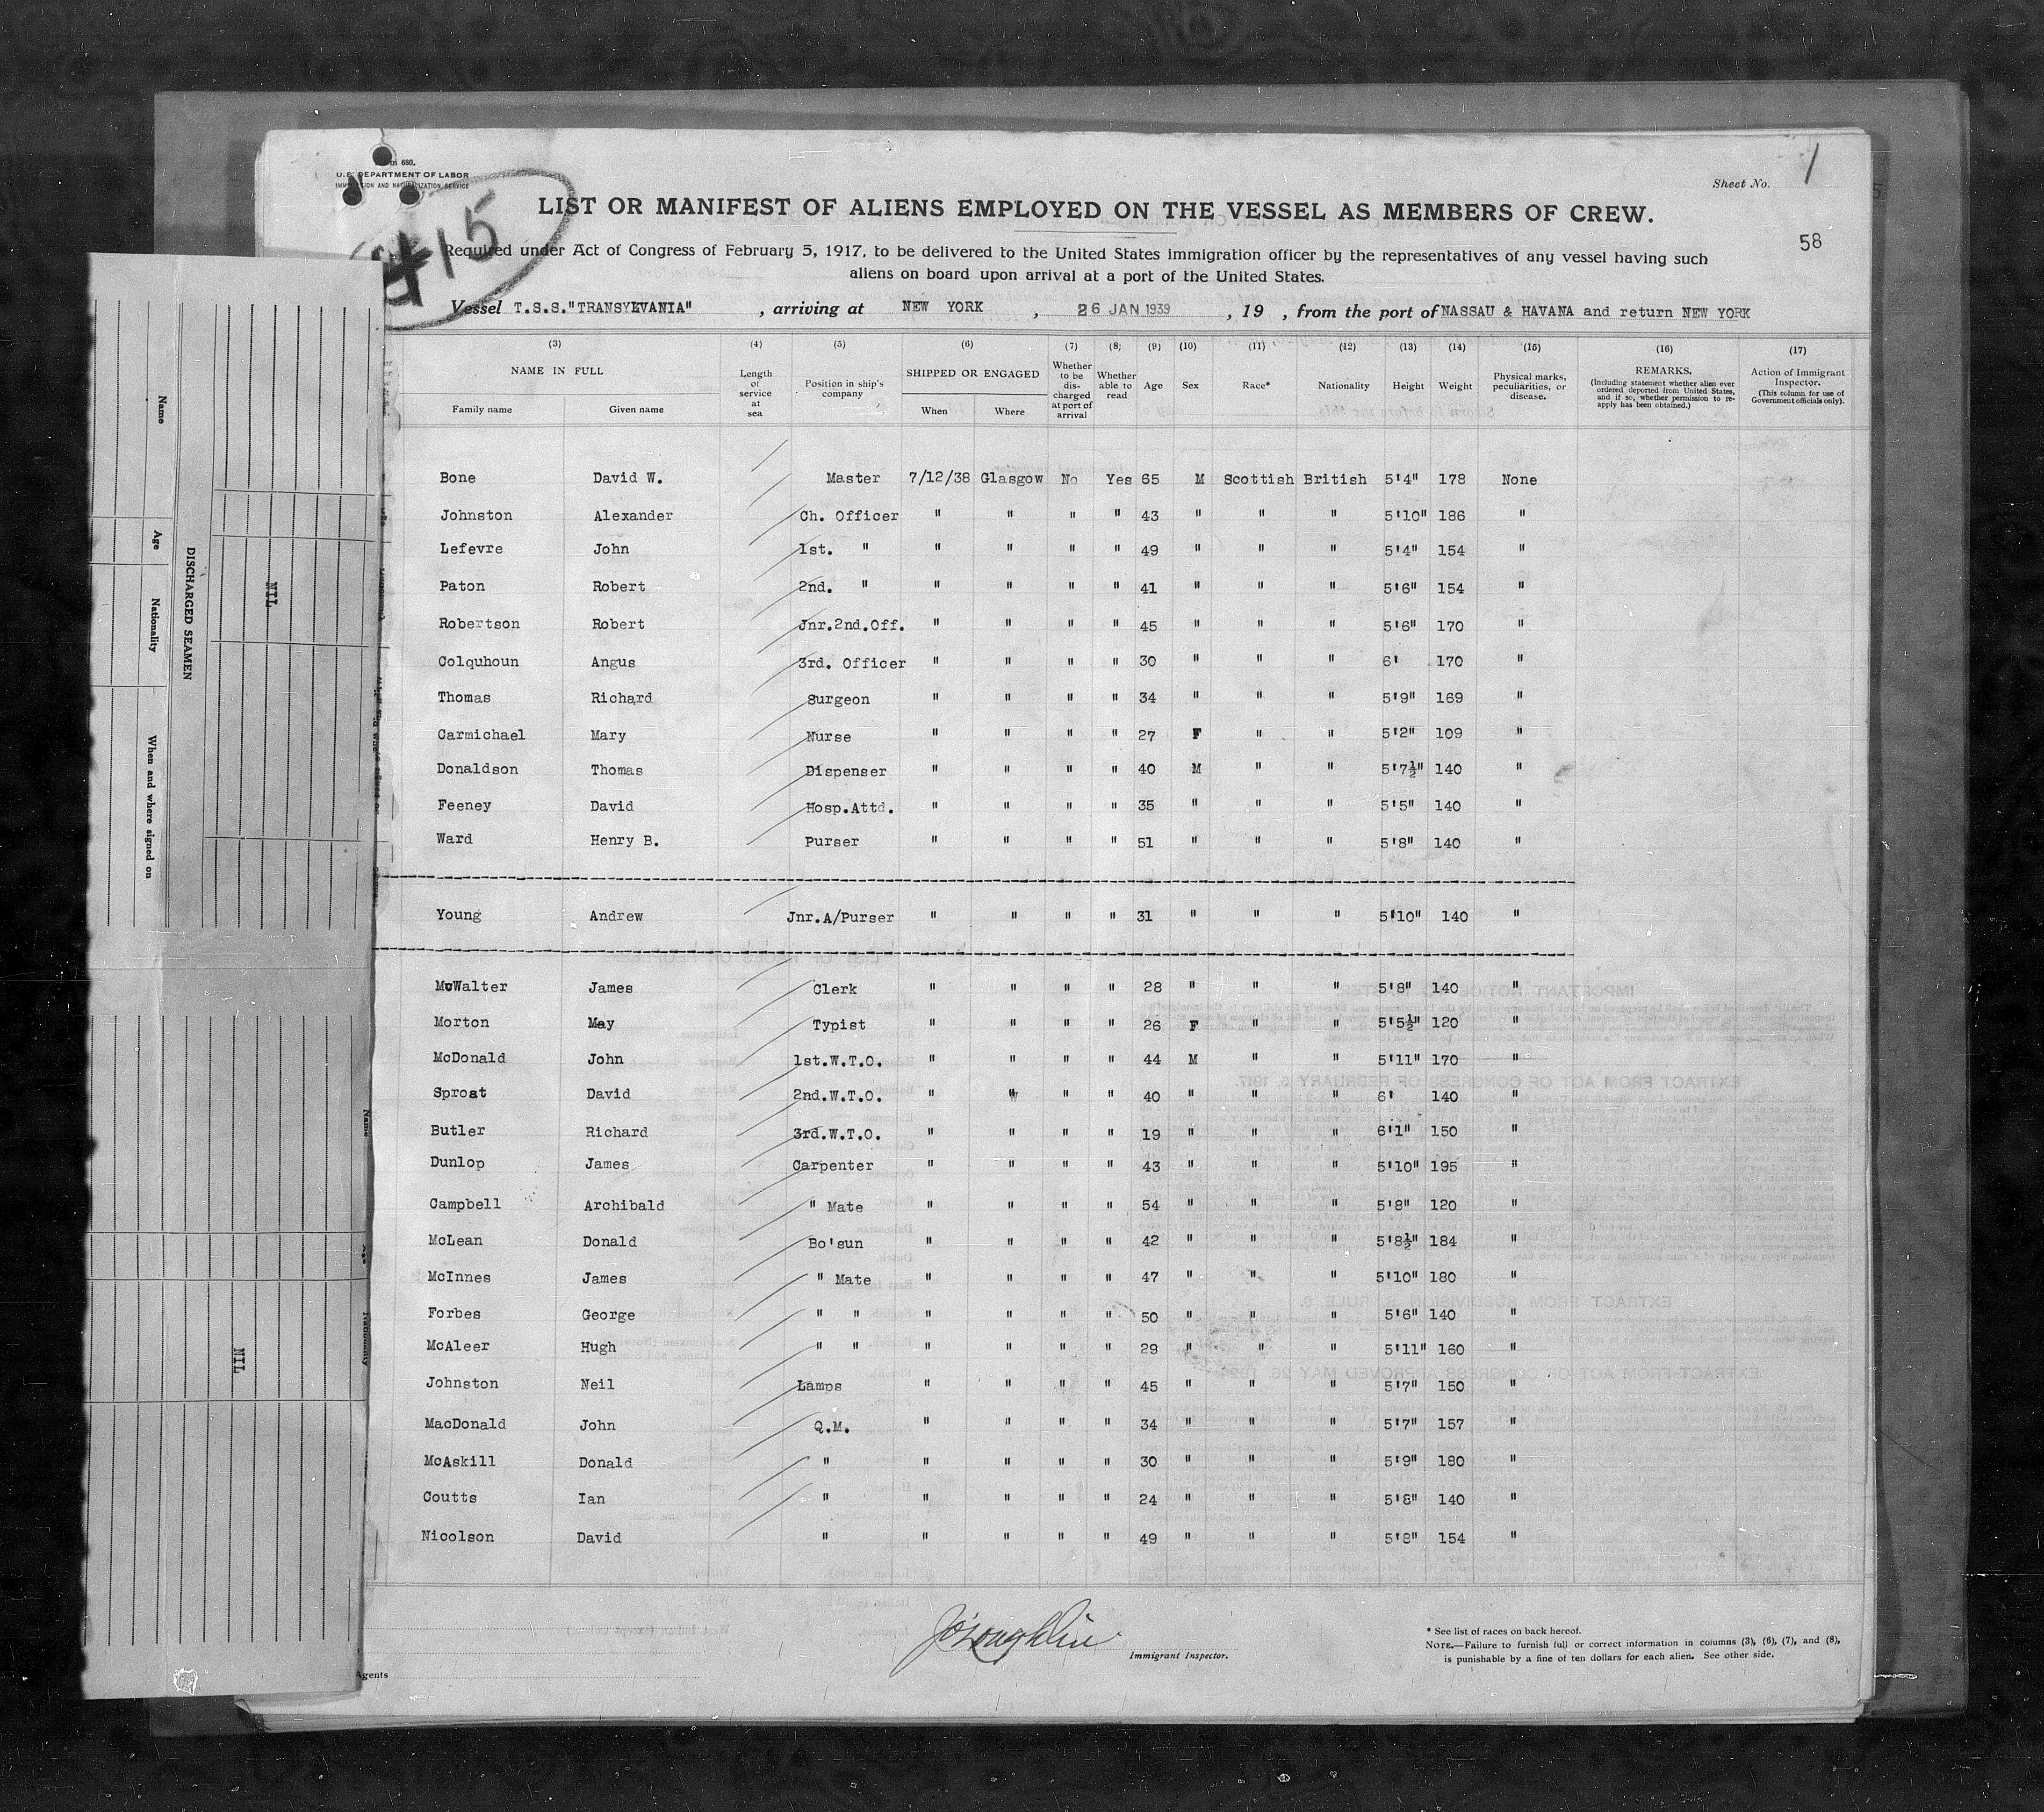 U.S. DEPARTMENT OF LABOR
#15
Sheet No. 1
LIST OR MANIFEST OF ALIENS EMPLOYED ON THE VESSEL AS MEMBERS OF CREW.
58
Required under Act of Congress of February 5, 1917, to be delivered to the United States immigration officer by the representatives of any vessel having such
aliens on board upon arrival at a port of the United States.
Vessel T.S.S."TRANSYLVANIA" , arriving at NEW YORK , 26 JAN 1939 , 19 , from the port of NASSAU & HAVANA and return NEW YORK
(3) (4) (5) (6) (7) (8) (9) (10) (11) (12) (13) (14) (15) (16) (17)
NAME IN FULL
Family name
Given name
Length of service at sea
Position in ship's company
SHIPPED OR ENGAGED
When
Where
Whether to be discharged at port of arrival
Whether able to read
Age
Sex
Race*
Nationality
Height
Weight
Physical marks, peculiarities, or disease.
REMARKS.
(Including statement whether alien ever ordered deported from United States, and if so, whether permission to reapply has been obtained.)
Action of Immigrant Inspector.
(This column for use of Government officials only).
Bone David W. Master 7/12/38 Glasgow No Yes 65 M Scottish British 5'4" 178 None
Johnston Alexander Ch. Officer " " " " 43 " " " 5'10" 186 "
Lefevre John 1st. " " " " " 49 " " " 5'4" 154 "
Paton Robert 2nd. " " " " " 41 " " " 5'6" 154 "
Robertson Robert Jnr.2nd.Off. " " " " 45 " " " 5'6" 170 "
Colquhoun Angus 3rd. Officer " " " " 30 " " " 6' 170 "
Thomas Richard Surgeon " " " " 34 " " " 5'9" 169 "
Carmichael Mary Nurse " " " " 27 F " " 5'2" 109 "
Donaldson Thomas Dispenser " " " " 40 M " " 5'7½" 140 "
Feeney David Hosp.Attd. " " " " 35 " " " 5'5" 140 "
Ward Henry B. Purser " " " " 51 " " " 5'8" 140 "
Young Andrew Jnr.A/Purser " " " " 31 " " " 5'10" 140 "
McWalter James Clerk " " " " 28 " " " 5'8" 140 "
Morton May Typist " " " " 26 F " " 5'5½" 120 "
McDonald John 1st.W.T.O. " " " " 44 M " " 5'11" 170 "
Sproat David 2nd.W.T.O. " " " " 40 " " " 6' 140 "
Butler Richard 3rd.W.T.O. " " " " 19 " " " 6'1" 150 "
Dunlop James Carpenter " " " " 43 " " " 5'10" 195 "
Campbell Archibald " Mate " " " " 54 " " " 5'8" 120 "
McLean Donald Bo'sun " " " " 42 " " " 5'8½" 184 "
McInnes James " Mate " " " " 47 " " " 5'10" 180 "
Forbes George " " " " " " 50 " " " 5'6" 140 "
McAleer Hugh " " " " " " 29 " " " 5'11" 160 "
Johnston Neil Lamps " " " " 45 " " " 5'7" 150 "
MacDonald John Q.M. " " " " 34 " " " 5'7" 157 "
McAskill Donald " " " " " 30 " " " 5'9" 180 "
Coutts Ian " " " " " 24 " " " 5'8" 140 "
Nicolson David " " " " " 49 " " " 5'8" 154 "
Immigrant Inspector.
* See list of races on back hereof.
NOTE.—Failure to furnish full or correct information in columns (3), (6), (7), and (8),
is punishable by a fine of ten dollars for each alien. See other side.
Agents
DISCHARGED SEAMEN
Name
Age
Nationality
When and where signed on
NIL
NIL